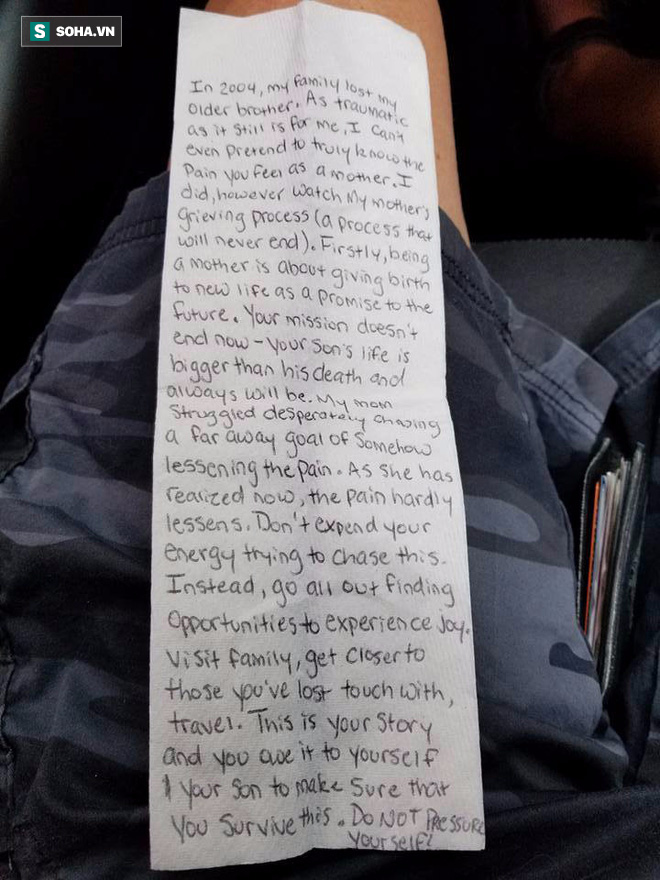 S SOHA.VN
In 2004, my family lost my
older brother. As traumatic
as it still is for me, I can't
even pretend to truly know the
pain you feel as a mother. I
did, however watch my mother's
grieving process (a process that
will never end). Firstly, being
a mother is about giving birth
to new life as a promise to the
future. Your mission doesn't
end now - your son's life is
bigger than his death and
always will be. My mom
struggled desperately chasing
a far away goal of somehow
lessening the pain. As she has
realized now, the pain hardly
lessens. Don't expend your
energy trying to chase this.
Instead, go all out finding
opportunities to experience joy.
Visit family, get closer to
those you've lost touch with,
travel. This is your story
and you owe it to yourself
& your son to make sure that
you survive this. DO NOT PRESSURE
yourself!